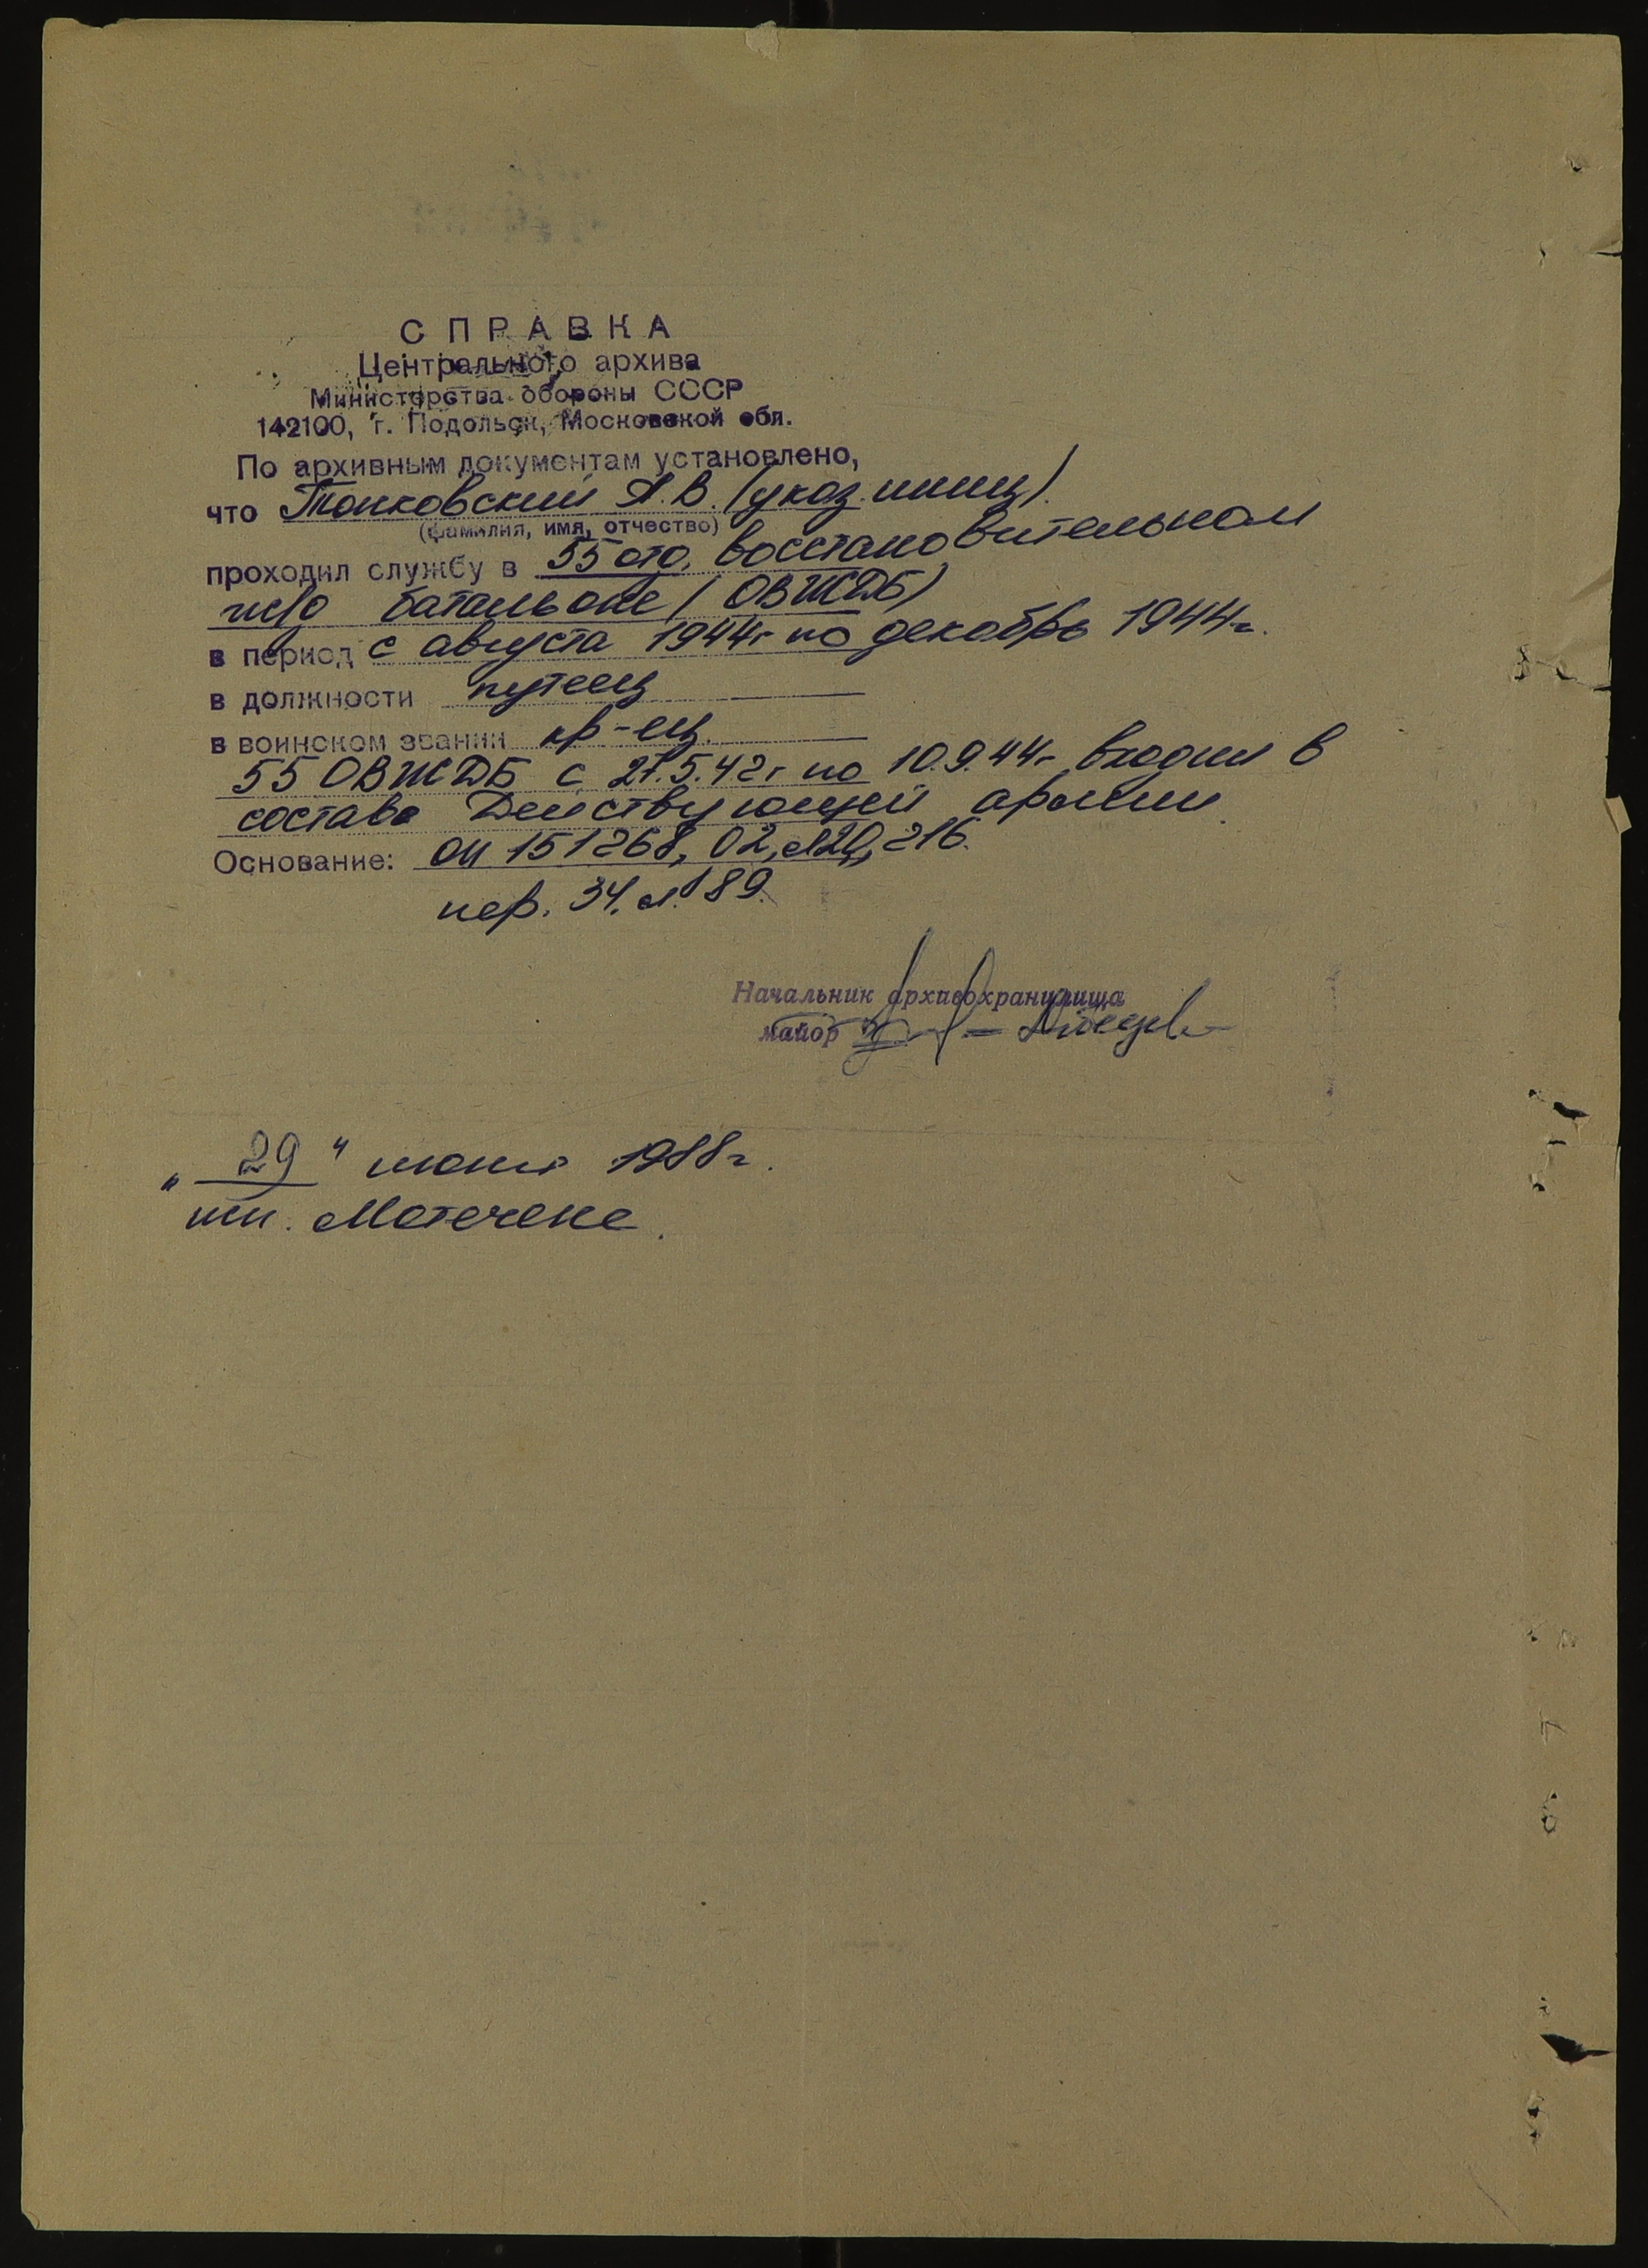 СПРАВКА
Центрального архива
Министерства обороны СССР
142100, г. Подольск, Московской обл.
По архивным документам установлено,
что Тонковский А.В. (указ. иниц).
(фамилия, имя, отчество)
проходил службу в 55 отд. восстановительном
ж/д батальоне (ОВЖДБ)
в период с августа 1944г по декабрь 1944г.
в должности путеец
в воинском звании кр-ец.
55 ОВЖДБ с 27.5.42г по 10.9.44г входил в
состав Действующей армии.
Основание: оп 151268, 02, л 20, 216.
пер. 34. л. 189.
Начальник архивохранилища
майор
„29" июня 1988г.
исп. Мотечене.